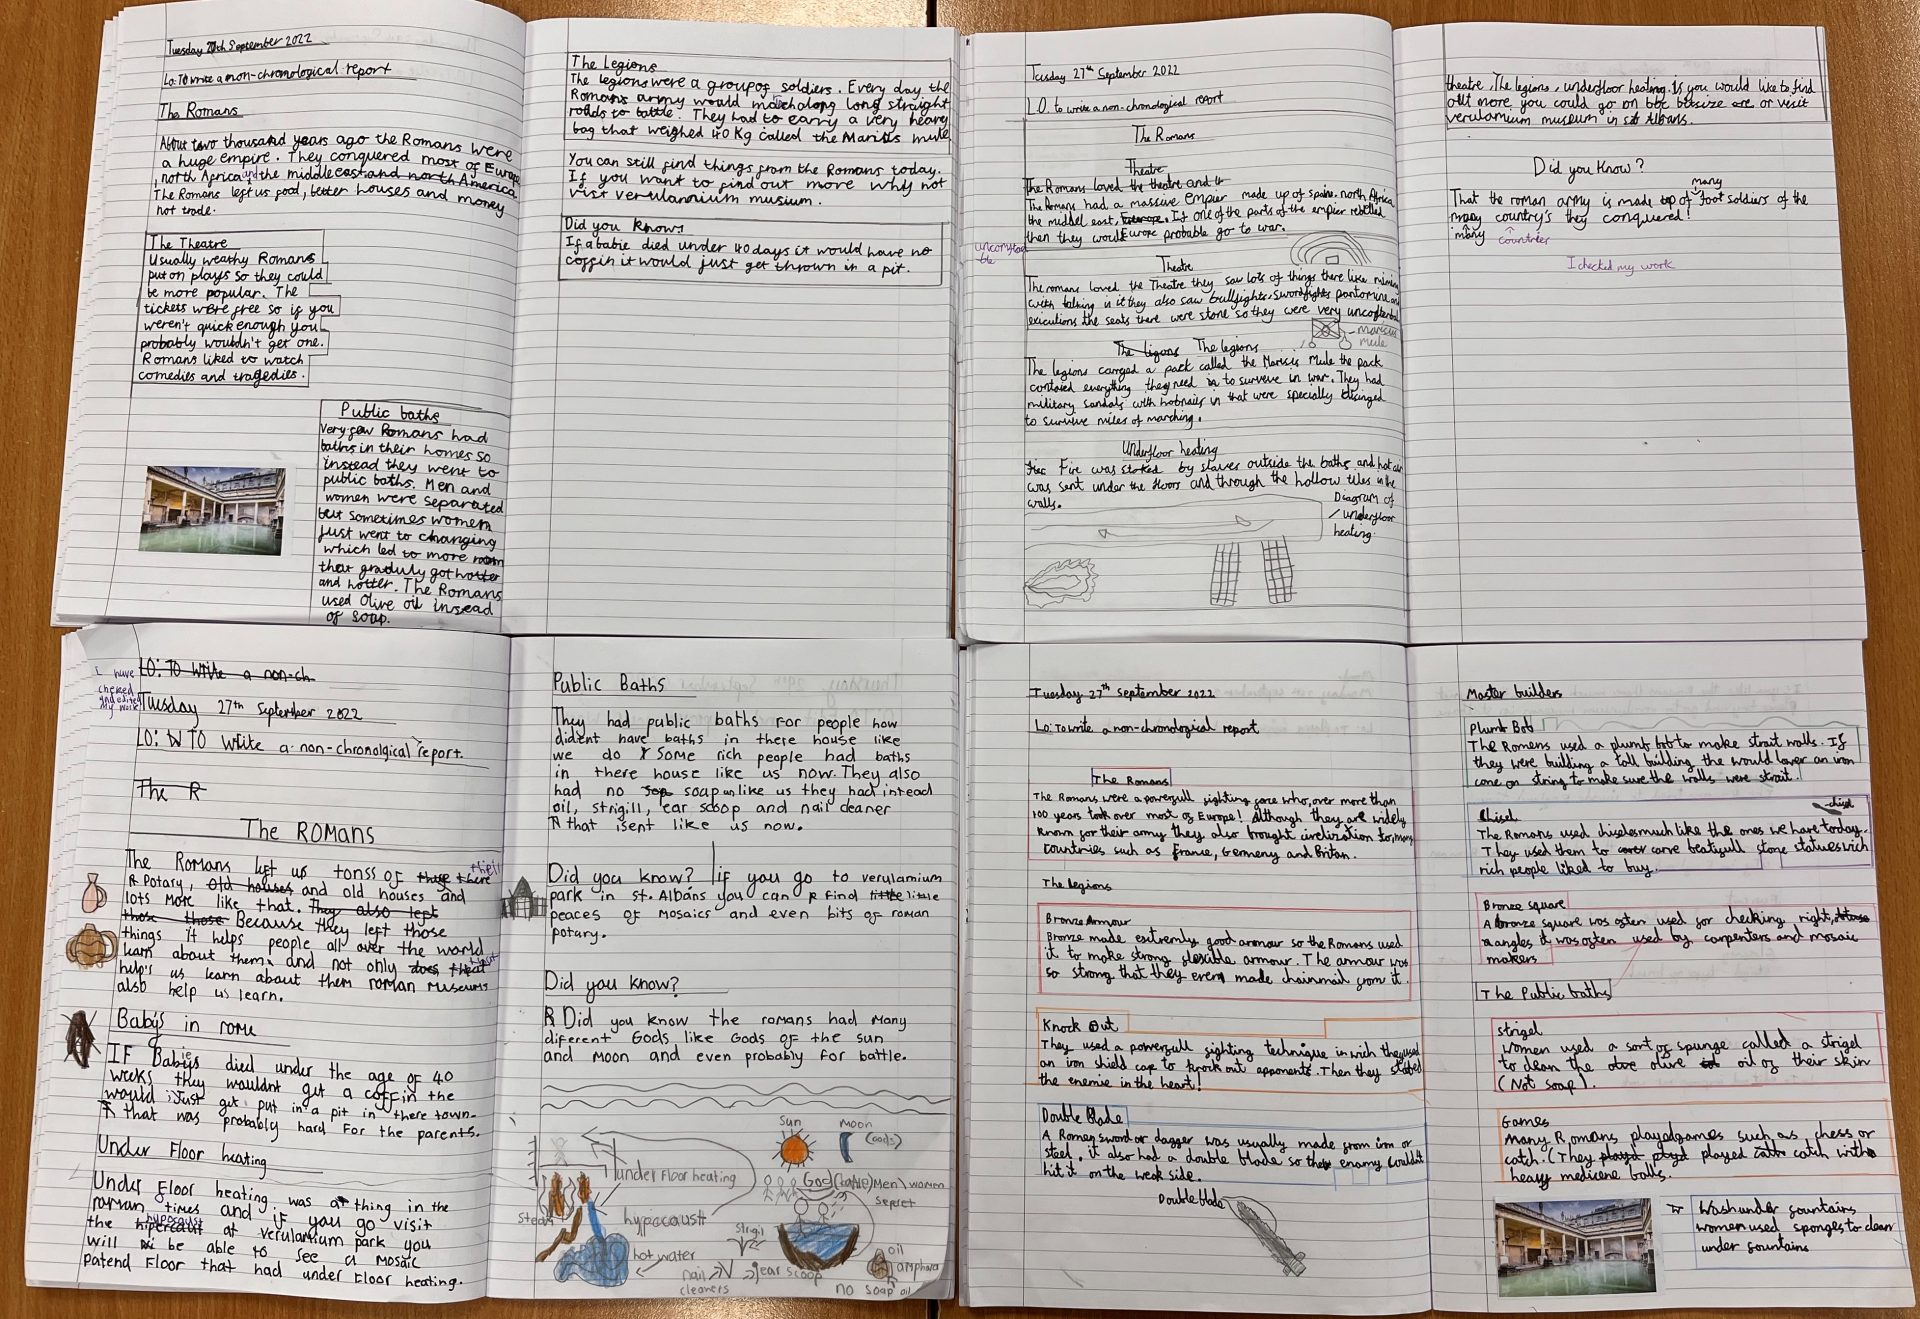 Tuesday 20th September 2022
LO: TO write a non-chronological report
The Romans
About two thousand years ago the Romans were
a huge empire. They conquered most of Europe
, north Africa and the middle east and north America.
The Romans left us food, better houses and money
not trade.
The Theatre
Usually wealthy Romans
put on plays so they could
be more popular. The
tickets were free so if you
weren't quick enough you
probably wouldn't get one.
Romans liked to watch
comedies and tragedies.
Public baths
Very few Romans had
baths in their homes so
instead they went to
public baths. Men and
women were separated
but sometimes women
just went to changing
which led to more room
that graduly got hotter
and hotter. The Romans
used Olive oil insead
of soap.
The Legions
The legions were a group of soldiers. Every day the
Romans army would march along long straight
roads to battle. They had to carry a very heavy
bag that weighed 40 Kg called the Marius mule
You can still find things from the Romans today.
If you want to find out more why not
visit verulamium musium.
Did you Know?
If a babie died under 40 days it would have no
coffin it would just get thrown in a pit.
Tusday 27th September 2022
L.O. to write a non-chronological report
The Romans
Theatre
The Romans loved the theatre and it
The Romans had a massive empier made up of spain. north Africa
the middel east, Europe. If one of the parts of the empier rebelled
then they would Europe probable go to war.
uncomfortable
Theatre
The romans loved the Theatre they saw lots of things there like miming
with talking in it they also saw bullfights, swordfights pantomime and
executions the seats there were stone so they were very
marius
mule
The ligons The legions
The legions carryed a pack called the Marius Mule the pack
contared everything they need in to surveve in war. They had
military sandals with hobnails in that were specially
to survive miles of marching.
Underfloor heating
Fire was stoked by slaves outside the baths and hot air
was sent under the floors and through the hollow tiles in the
walls.
Diagram of
underfloor
heating.
theatre, The legions, underfloor heating. If you would like to find
out more you could go on bbc bitesize or visit
verulamium museum in st Albans.
Did you Know?
many
That the roman army is made up of foot soldiers of the
many country's they conquered!
many countries
I checked my work
I have
checked
and edited
my work
LO: TO Write a non-ch
Tuesday 27th September 2022
LO: TO Write a non-chronolgical report.
The R
The ROMANS
The Romans left us tonss of these there their
Potary, old houses and old houses and
lots more like that. They also left
those those Because they left those
things it helps people all over the world
learn about them and not only does that
help's us learn about them roman museums
also help us learn.
Baby's in rome
IF Babies died under the age of 40
weeks they wouldnt get a coffin the
would just get put in a pit in there town.
that was probably hard for the parents.
Under Floor heating
Under Floor heating was a thing in the
roman times and if you go visit
hypocaust
the hipercaust at verulamium park you
will be able to see a mosaic
patend Floor that had under Floor heating.
Public Baths
They had public baths for people how
dident have baths in there house like
we do Some rich people had baths
in there house like us now. They also
had no sop soap unlike us they had intead
oil, strigill, ear scoop and nail cleaner
that isent like us now.
Did you know? if you go to verulamium
park in St. Albans you can find little little
peaces of mosaics and even bits of roman
potary.
Did you know?
Did you know the romans had many
diferent Gods like Gods of the sun
and moon and even probably for battle.
Sun
Moon
(Gods)
under Floor heating
Men women
Steam
hypocaust
Strigil
hot water
nail
cleaners
ear scoop
oil
amphora
no soap oil
Tuesday 27th September 2022
Lo: To write a non-chronological report
The Romans
The Romans were a powerfull fighting force who, over more than
100 years took over most of Europe! Although they are widely
known for their army they also brought to many
countries such as france, Germeny and Britan.
The legions
Bronze Armour
Bronze made extremly good armour so the Romans used
it to make strong flexible armour. The armour was
so strong that they even made chainmail from it.
Knock Out
They used a powerfull fighting technique in wich they used
an iron shield cap to knock out apponents. Then they stabed
the enemie in the heart!
Double Blade
A Romen sword or dagger was usually made from iron or
steel. it also had a double blade so the enemy couldn't
hit it on the weak side.
Double blade
Master builders
Plumb Bob
The Romens used a plumb bob to make strait walls. If
they were building a tall building the would lower an iron
cone on string to make sure the walls were strait.
chisel
Chisel
The Romans used chisels much like the ones we have today.
They used them to carve beatifull stone statues wich
rich people liked to buy.
Bronze square
A bronze square was often used for checking right
angles it was often used by carpenters and mosaic
makers
The Public baths
Strigel
women used a sort of spunge called a strigel
to clean the olive olive oil of their skin
(Not soap).
Games
Many Romans played games such as chess or
catch. (They played catch with
heavy medicene balls.
Wash under fountains
women used sponges to clean
under fountains